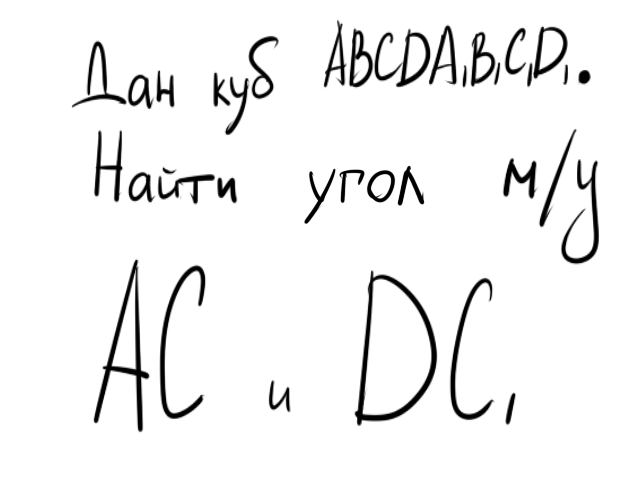 Дан куб ABCDA₁B₁C₁D₁.
Найти угол м/у
AC и DC₁